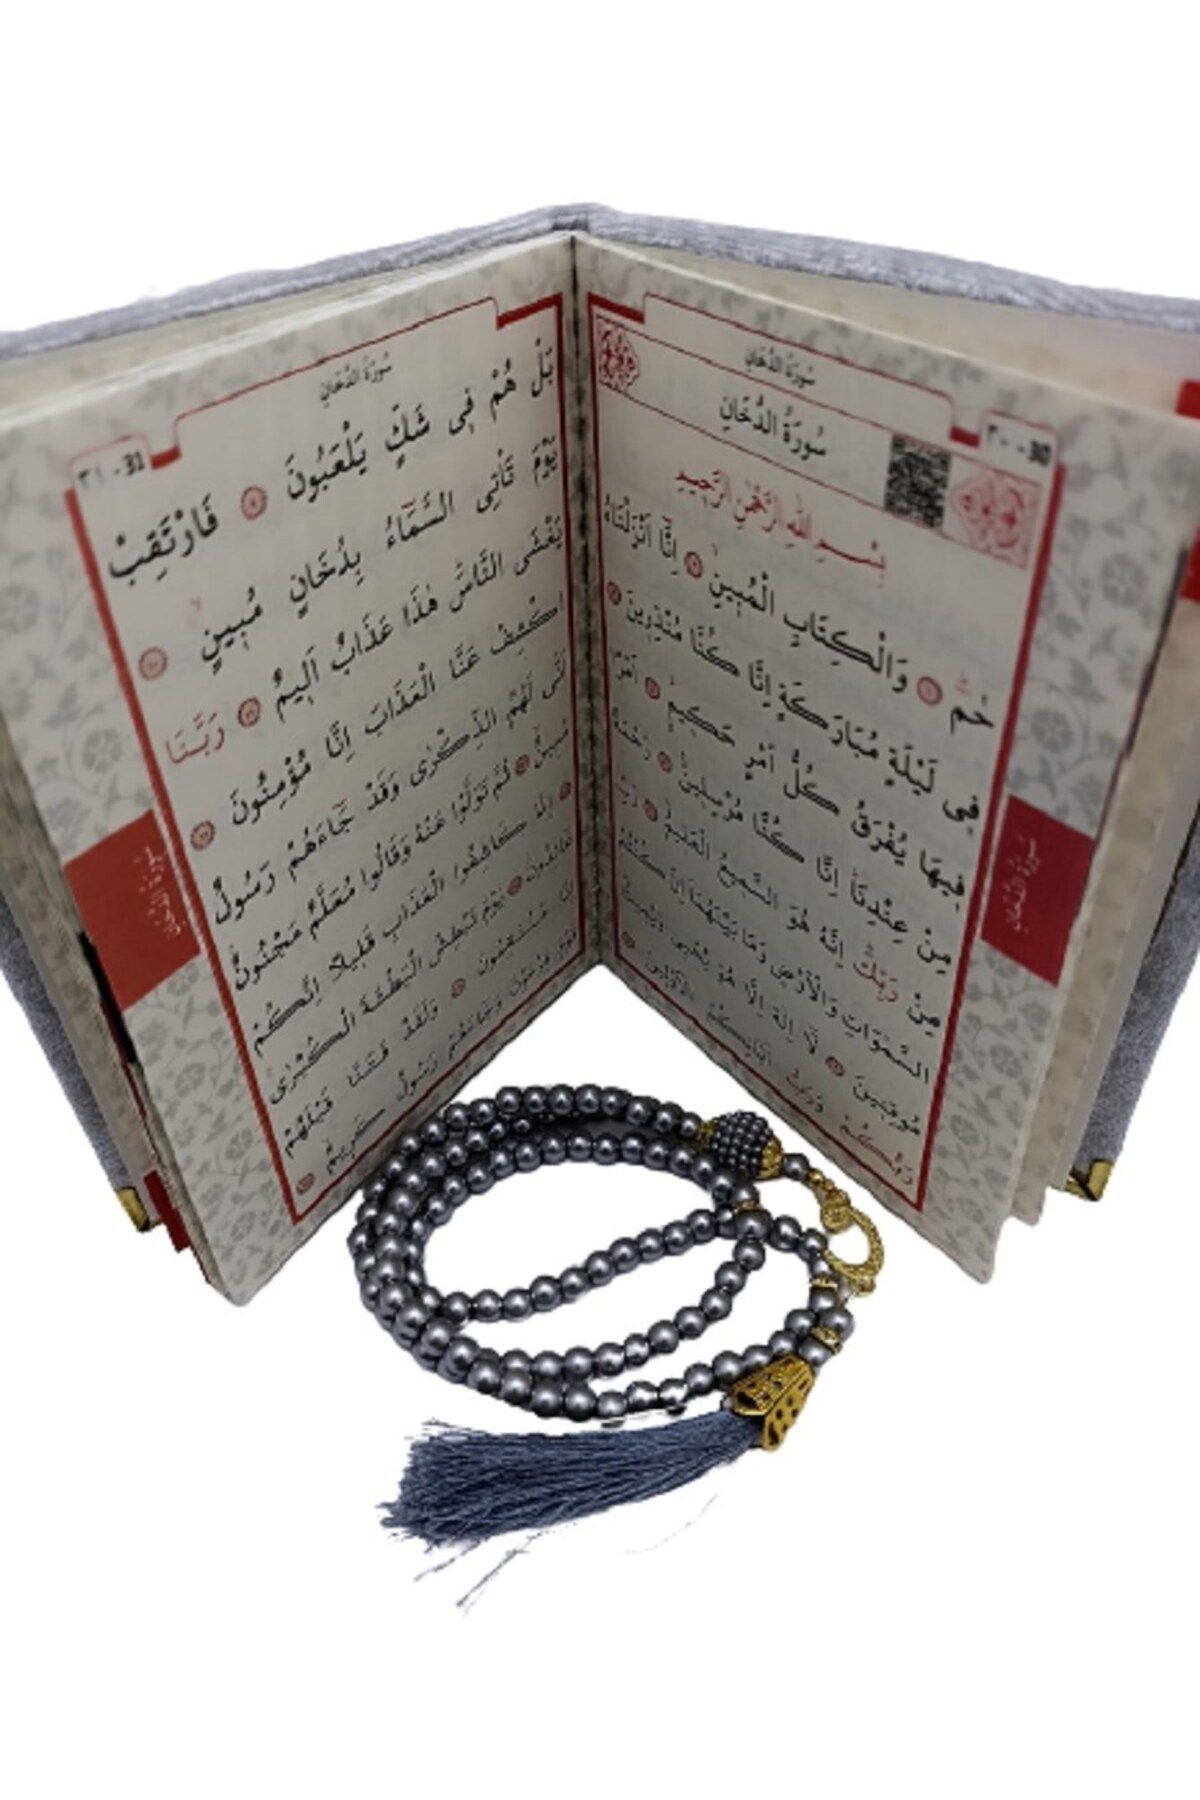 سُورَةُ الدُّخَانِ
٣٠-30
سُورَةُ الدُّخَانِ
بِسْمِ اللّٰهِ الرَّحْمٰنِ الرَّحِيمِ
حٰمٓ وَالْكِتَابِ الْمُبٖينِ اِنَّٓا اَنْزَلْنَاهُ
فٖى لَيْلَةٍ مُبَارَكَةٍ اِنَّا كُنَّا مُنْذِرٖينَ
فٖيهَا يُفْرَقُ كُلُّ اَمْرٍ حَكٖيمٍ اَمْرًا
مِنْ عِنْدِنَا اِنَّا كُنَّا مُرْسِلٖينَ رَحْمَةً
مِنْ رَبِّكَ اِنَّهُ هُوَ السَّمٖيعُ الْعَلٖيمُ رَبِّ
السَّمٰوَاتِ وَالْاَرْضِ وَمَا بَيْنَهُمَا اِنْ كُنْتُمْ
مُوقِنٖينَ لَٓا اِلٰهَ اِلَّا هُوَ يُحْيٖى وَيُمٖيتُ
رَبُّكُمْ وَرَبُّ اٰبَٓائِكُمُ الْاَوَّلٖينَ
سُورَةُ الدُّخَانِ
سُورَةُ الدُّخَانِ
٣١-31
بَلْ هُمْ فٖى شَكٍّ يَلْعَبُونَ فَارْتَقِبْ
يَوْمَ تَاْتِى السَّمَٓاءُ بِدُخَانٍ مُبٖينٍ
يَغْشَى النَّاسَ هٰذَا عَذَابٌ اَلٖيمٌ رَبَّنَا
اكْشِفْ عَنَّا الْعَذَابَ اِنَّا مُؤْمِنُونَ
اَنّٰى لَهُمُ الذِّكْرٰى وَقَدْ جَٓاءَهُمْ رَسُولٌ
مُبٖينٌ ثُمَّ تَوَلَّوْا عَنْهُ وَقَالُوا مُعَلَّمٌ مَجْنُونٌ
اِنَّا كَاشِفُوا الْعَذَابِ قَلٖيلًا اِنَّكُمْ
عَٓائِدُونَ يَوْمَ نَبْطِشُ الْبَطْشَةَ الْكُبْرٰى
اِنَّا مُنْتَقِمُونَ وَلَقَدْ فَتَنَّا قَبْلَهُمْ
قَوْمَ فِرْعَوْنَ وَجَٓاءَهُمْ رَسُولٌ كَرٖيمٌ
سُورَةُ الدُّخَانِ